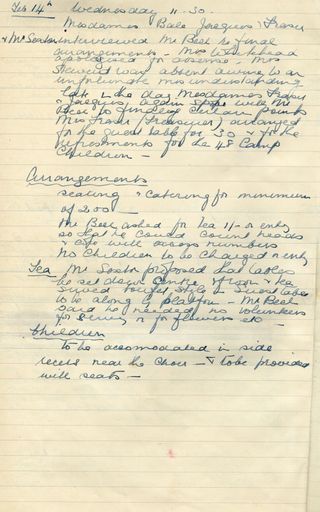 Feb 14th Wednesday 11.30.
Mesdames Bale Jaques & Fraser
& Mr Seaton interviewed Mr Beel re final
arrangements – Mrs Whitehead
apologised for absence – Mrs
was absent owing to an
unfortunate misunderstanding
Late in the day Mesdames Fraser
& Jaques, again spoke with Mr
Beel re finalising certain points
Mrs Fraser (Treasurer) arranged
for the guest table for 30 & for the
refreshments for the 48 Camp
Children –
Arrangements
Seating & Catering for minimum
of 200 –
Mr Beel asked for Tea 1/- on entry
so that he could count heads
& Cafe will assess numbers
No Children to be charged entry
Tea – Mr Seaton proposed that tables
be set down Centre of room & tea
served buffet style – Guest table
to be along by platform – Mr Beel
said he needed no volunteers
for serving or for flowers etc –
Children
To be accomodated in side
recess near the door – & to be provided
with seats –